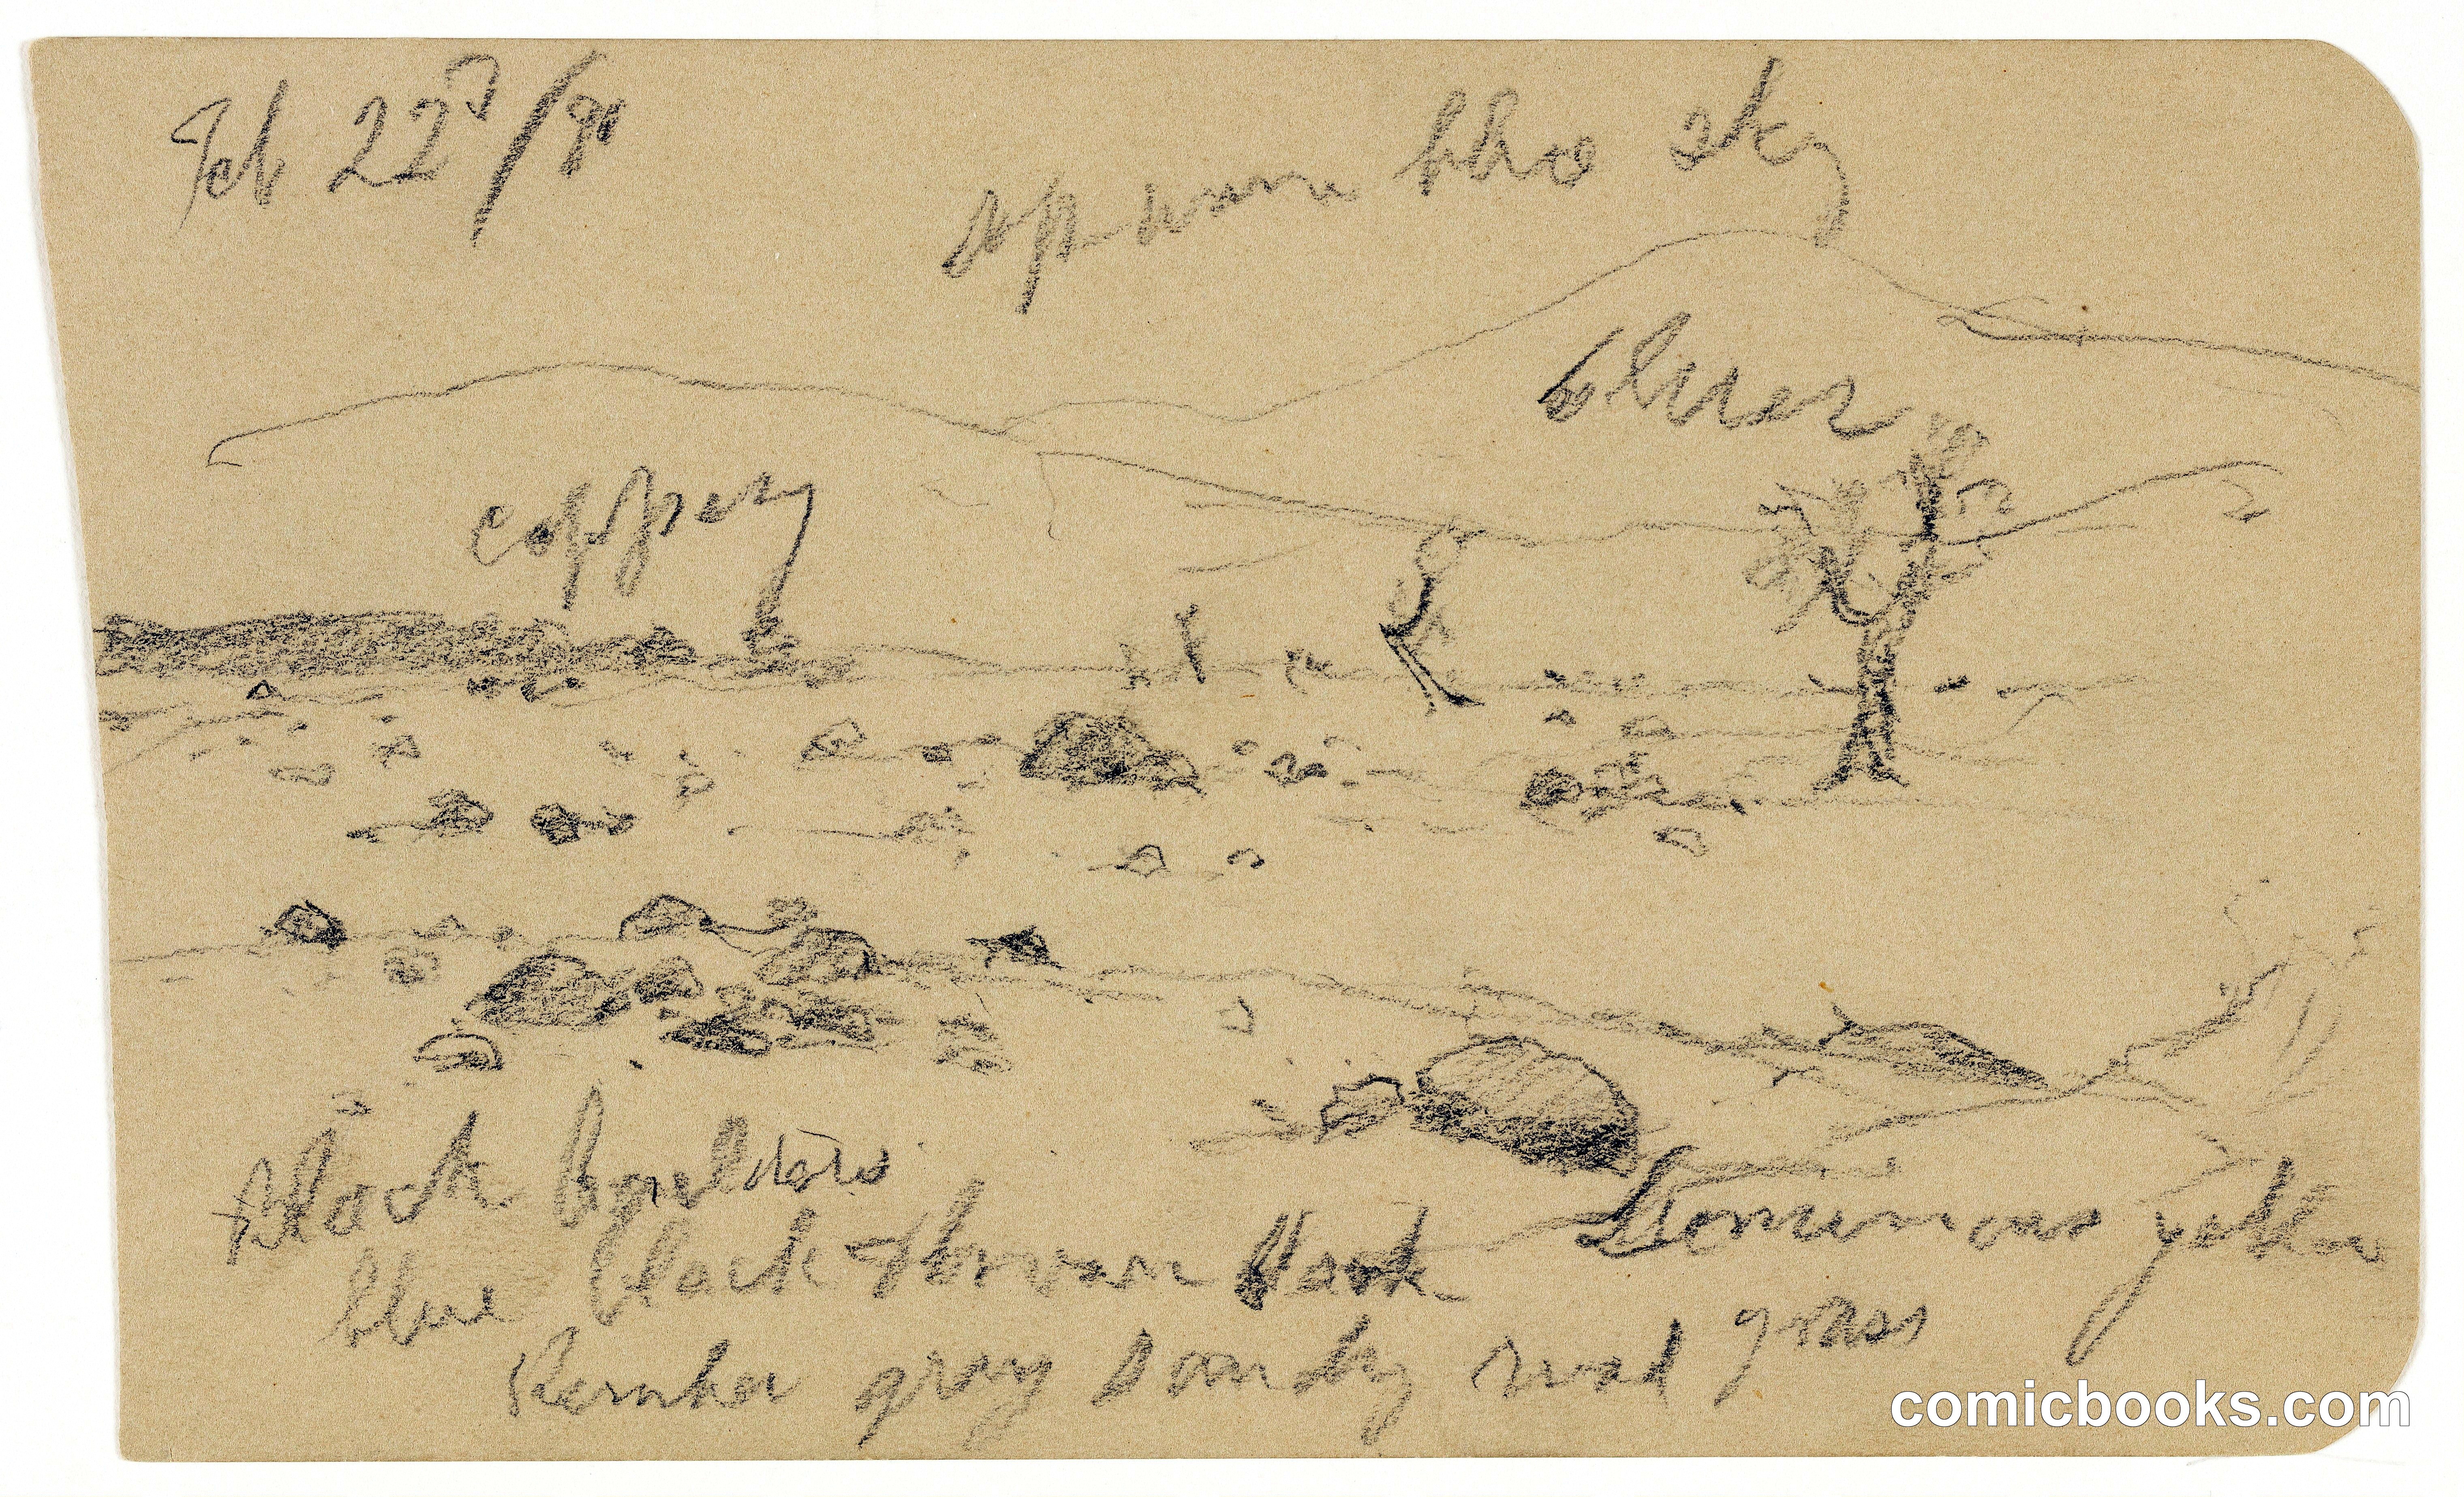 Feb 22d/90
blue sky
bluer
coppery
Black boulders
blue black brown black
luminous yellow
grey sandy road grass
comicbooks.com